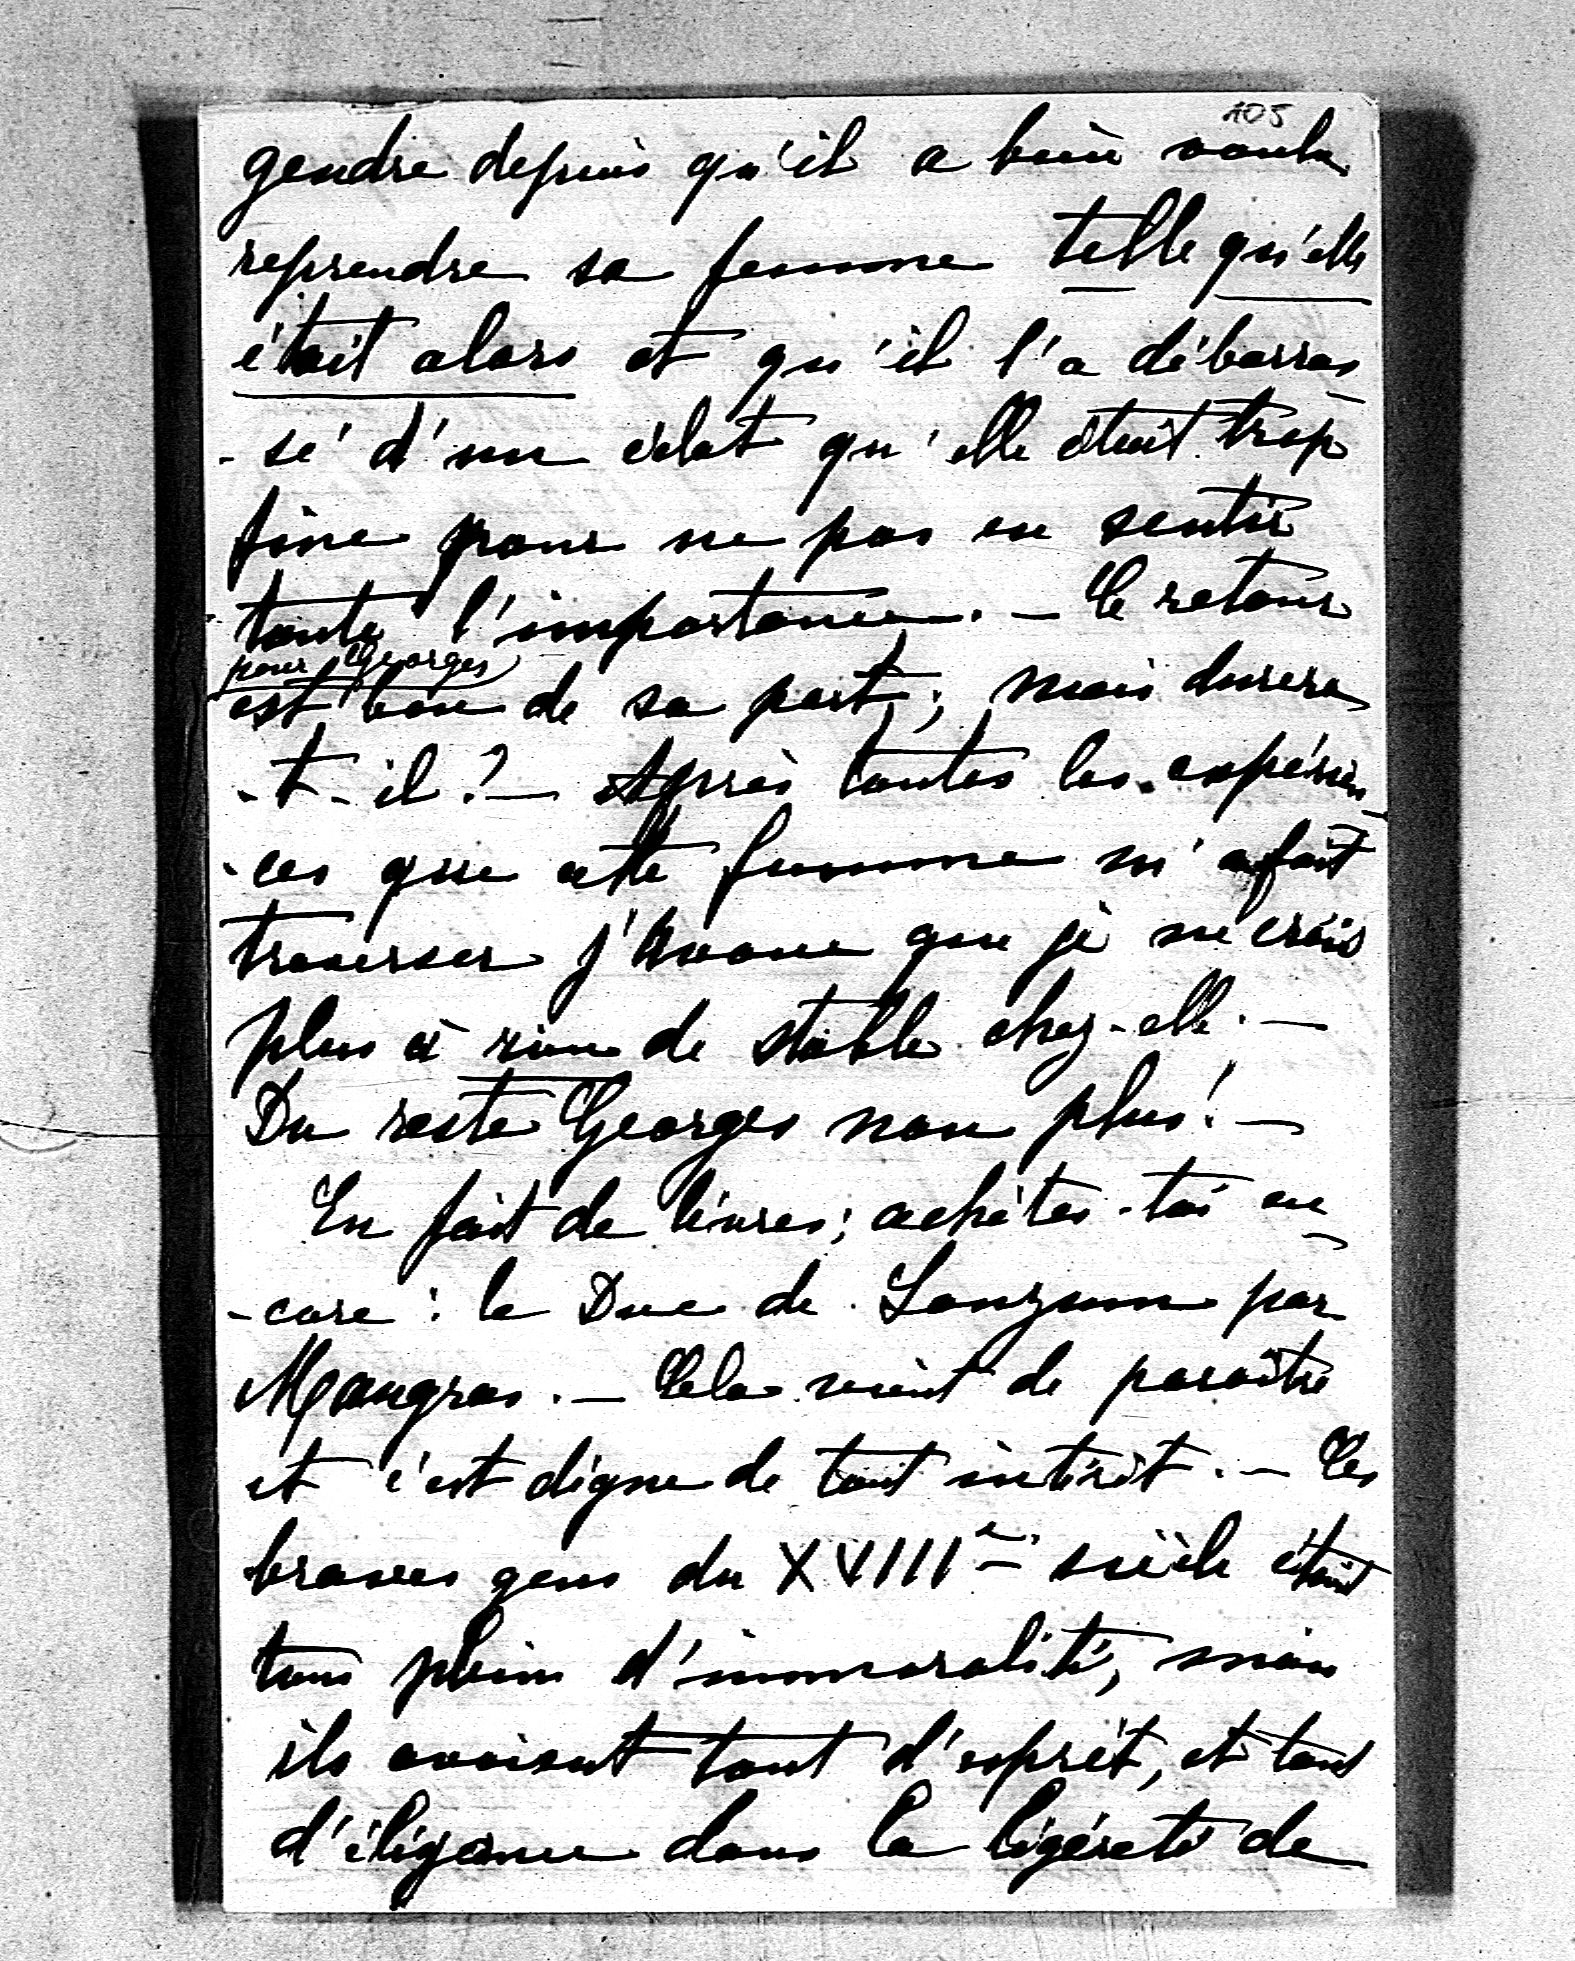 105
gendre depuis qu'il a bien voulu
reprendre sa femme telle qu'elle
était alors et qu'il l'a débarras
- sé d'un éclat qu'elle était trop
fine pour ne pas en sentir
toute l'importance. — Ce retour
pour Georges
est bon de sa part; mais durera
- t - il ? — Après toutes les expérien-
- ces que cette femme m'a fait
traverser j'avoue que je ne crois
plus à rien de stable chez-elle. —
Du reste Georges non plus! —
En fait de livres; achètes-toi en-
- core : le Duc de Lauzun par
Maugras. — Cela vient de paraître
et c'est digne de tout intérêt. — Ces
braves gens du XVIIIe siècle étaient
tous pleins d'immoralité, mais
ils avaient tant d'esprit, et tant
d'élégance dans la légèreté de